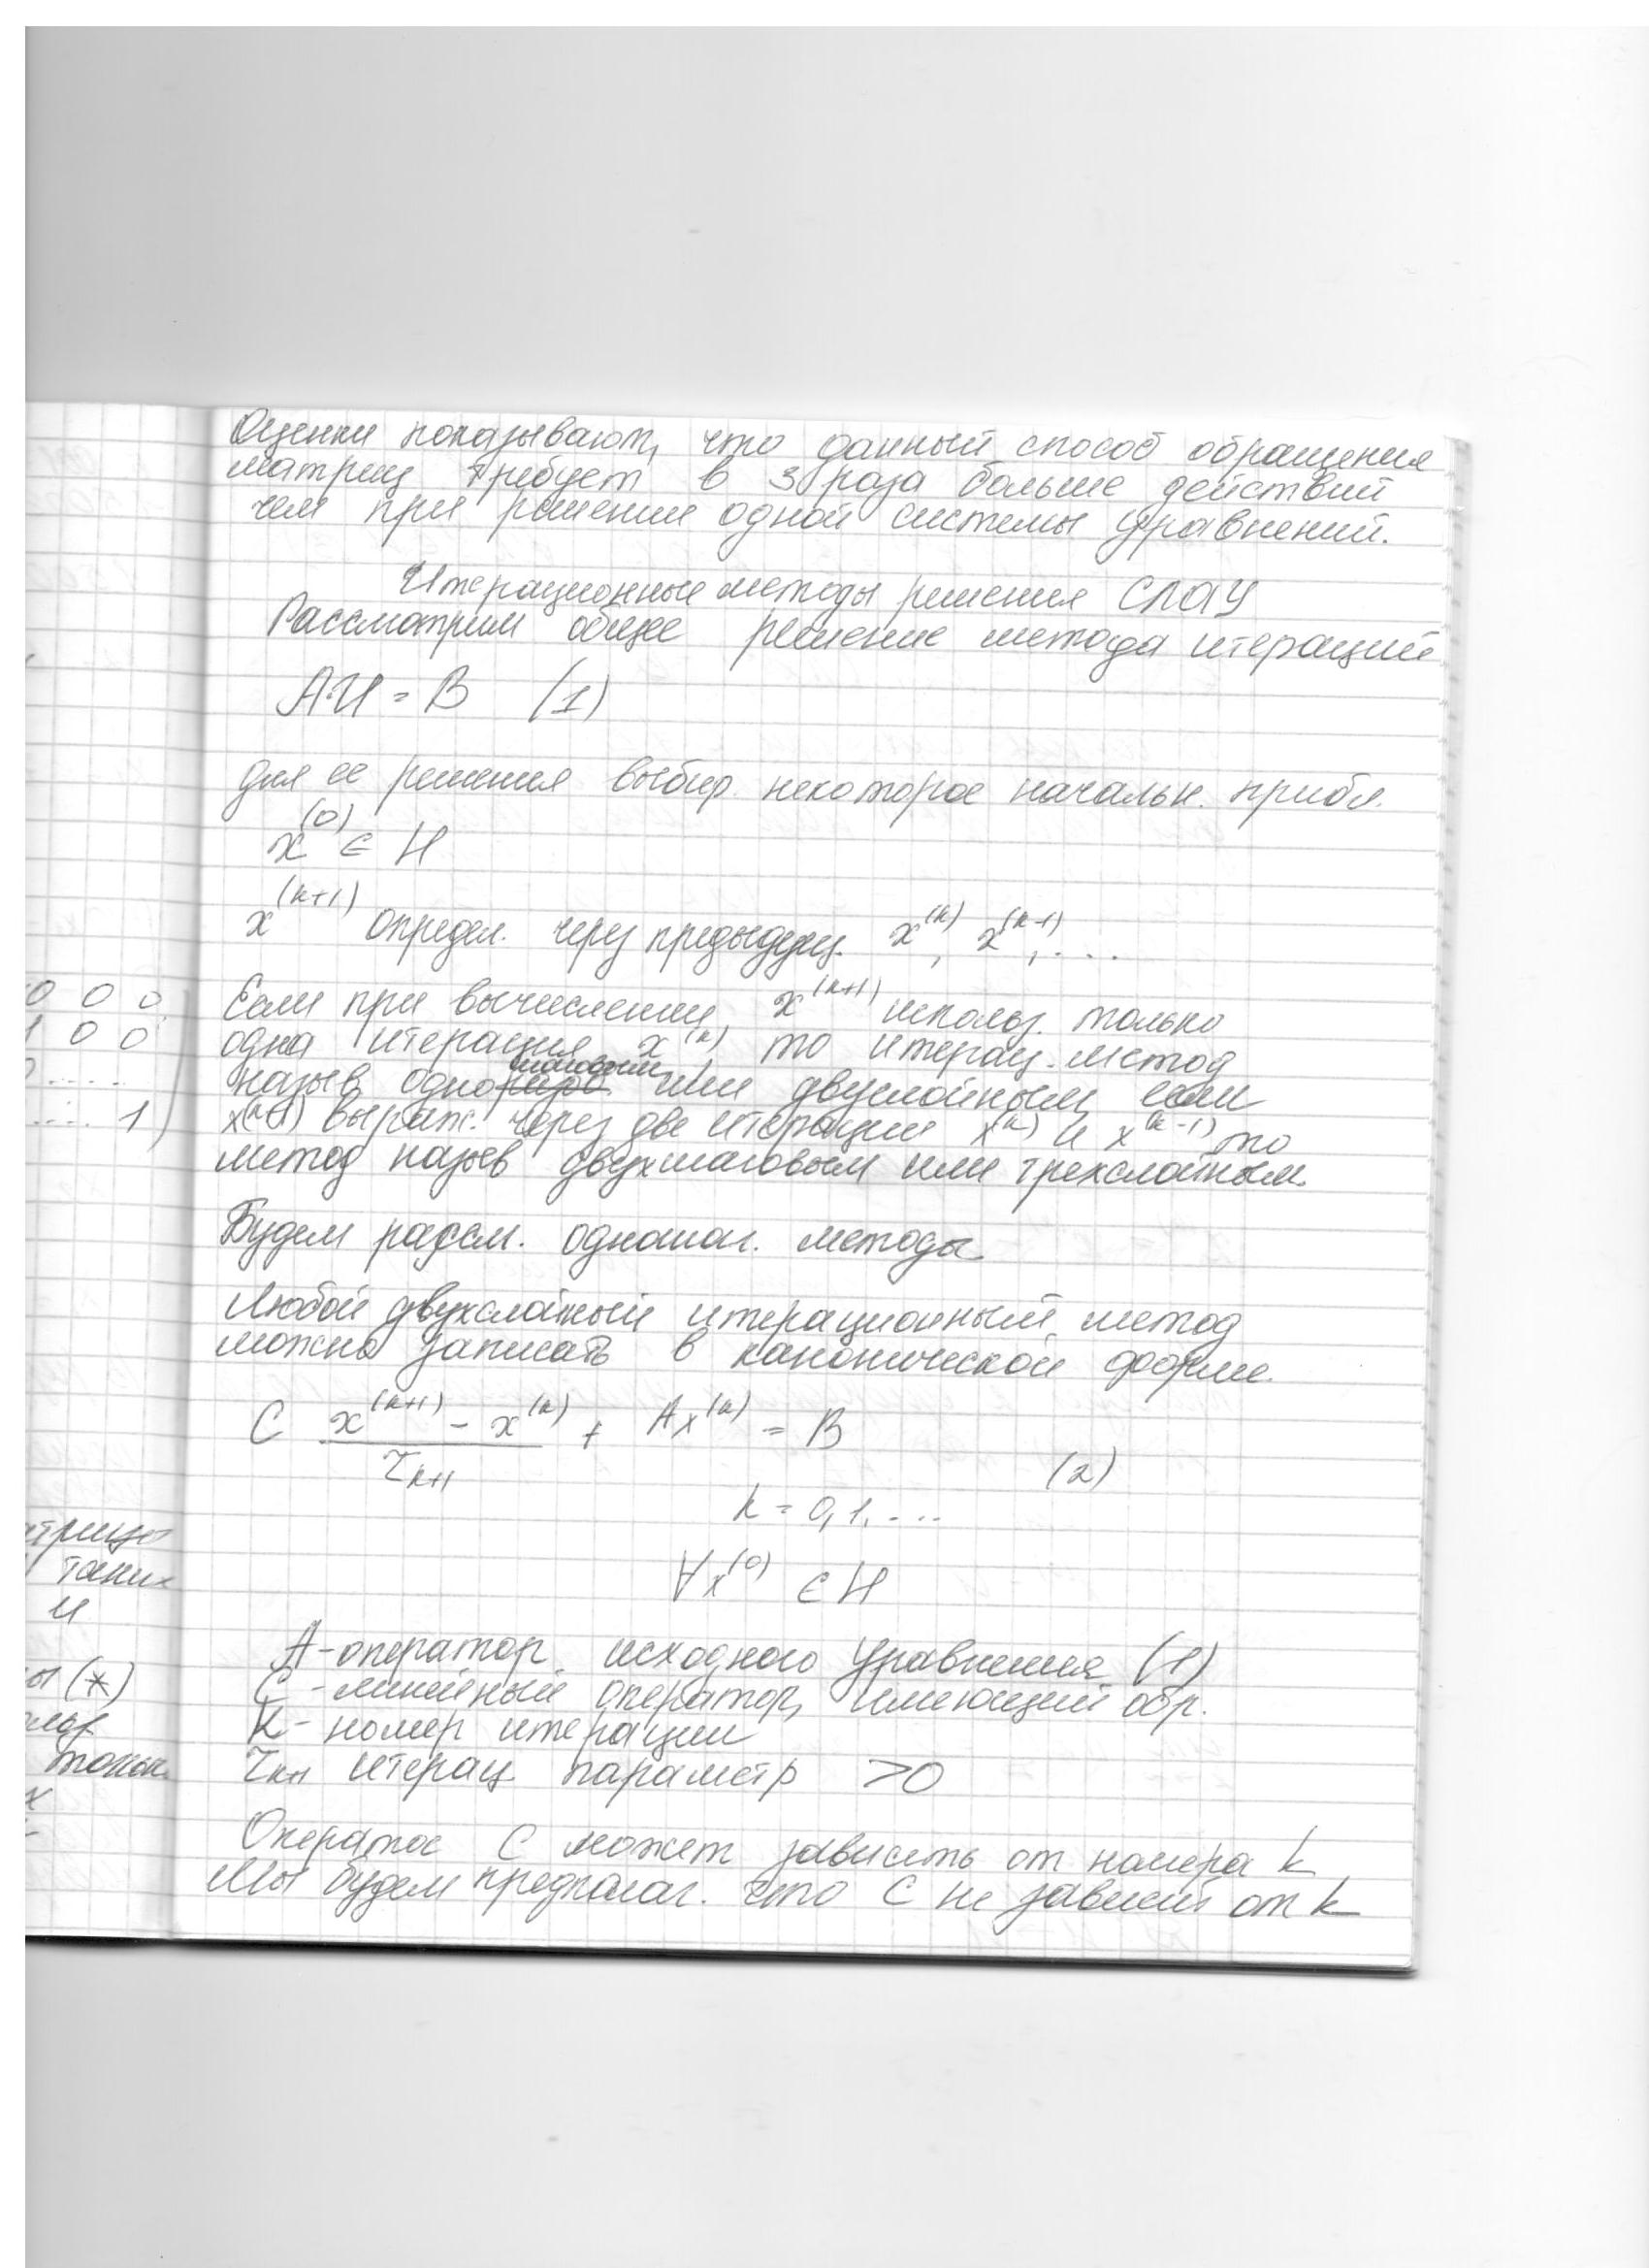 Оценки показывают, что данный способ обращения
матриц требует в 3 раза больше действий
чем при решении одной системы уравнений.
Итерационные методы решения СЛАУ
Рассмотрим общее решение метода итераций
AU = B (1)
для ее решения выбир. некоторое начальн. прибл.
x^(0) ∈ H
x^(k+1) определ. через предыдущ. x^(k), x^(k-1), ...
Если при вычислении x^(k+1) использ. только
одна итерация x^(k), то итерац. метод
назыв одношаговым или двуслойным, если
x^(k+1) выраж. через две итерации x^(k) и x^(k-1) то
метод назыв двухшаговым или трехслойным.
Будем рассм. одношаг. методы
Любой двухслойный итерационный метод
можно записать в канонической форме.
C (x^(k+1) - x^(k)) / τ_k+1 + Ax^(k) = B
(2)
k = 0, 1, ...
∀x^(0) ∈ H
A - оператор исходного уравнения (1)
C - линейный оператор, имеющий обр.
K - номер итерации
τ_k+1 итерац. параметр >0
Оператос C может зависеть от номера k
Мы будем предполаг. что C не зависит от k
0 0 0
1 0 0
0 .....
..... 1)
таки
и
(*)